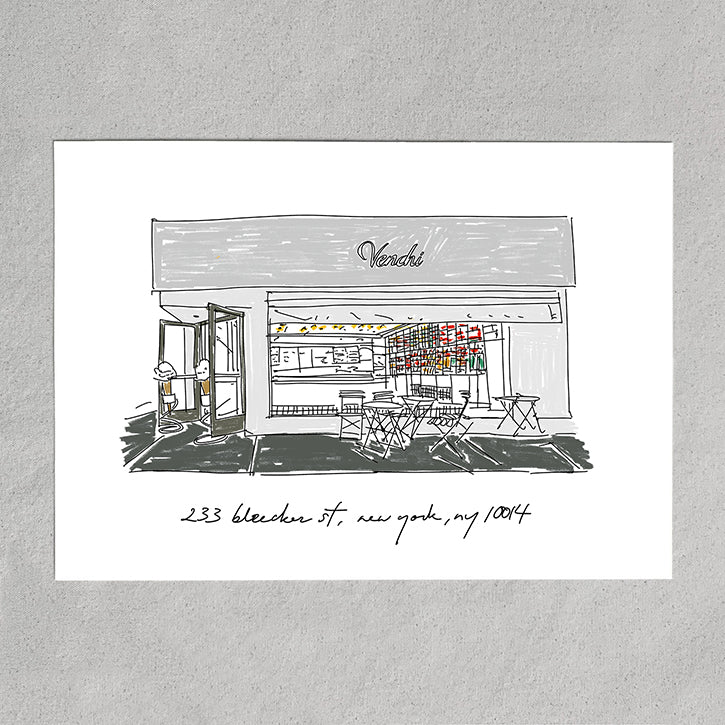 Venchi
233 bleecker st, new york, ny 10014